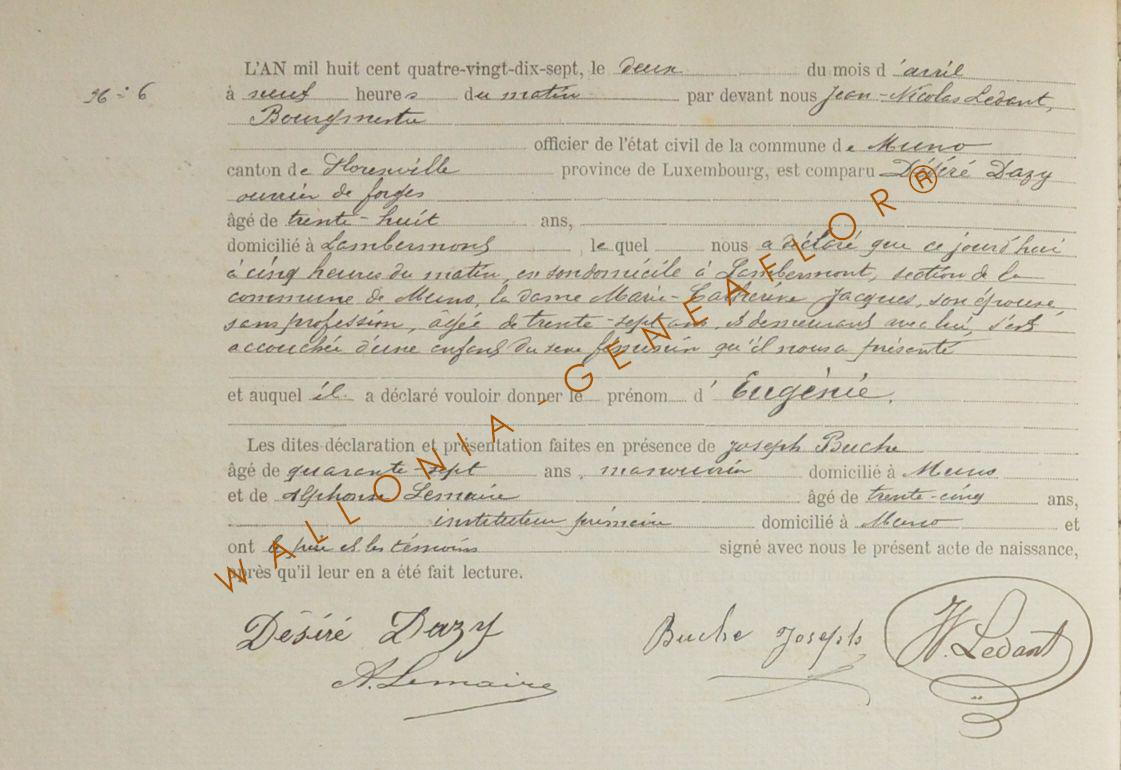 L'AN mil huit cent quatre-vingt-dix-sept, le deux du mois d'avril
N° 6
à neuf heures du matin par devant nous Jean-Nicolas Ledant,
Bourgmestre
officier de l'état civil de la commune de Muno
canton de Florenville province de Luxembourg, est comparu Désiré Dazy
ouvrier de forges
âgé de trente-huit ans,
domicilié à Lambermont, lequel nous a déclaré que ce jourd'hui
à cinq heures du matin, en son domicile à Lambermont, section de la
commune de Muno, la dame Marie-Catherine Jacques, son épouse,
sans profession, âgée de trente-sept ans, et demeurant avec lui, s'est
accouchée d'une enfant du sexe féminin qu'il nous a présenté
et auquel il a déclaré vouloir donner le prénom d'Eugénie.
Les dites déclaration et présentation faites en présence de Joseph Buche
âgé de quarante-sept ans, manouvrier domicilié à Muno
et de Alphonse Lemaire âgé de trente-cinq ans,
instituteur primaire domicilié à Muno et
ont le père et les témoins signé avec nous le présent acte de naissance,
après qu'il leur en a été fait lecture.
Désiré Dazy Buche Joseph N. Ledant
A. Lemaire
WALLONIA - GENEAFLOR®